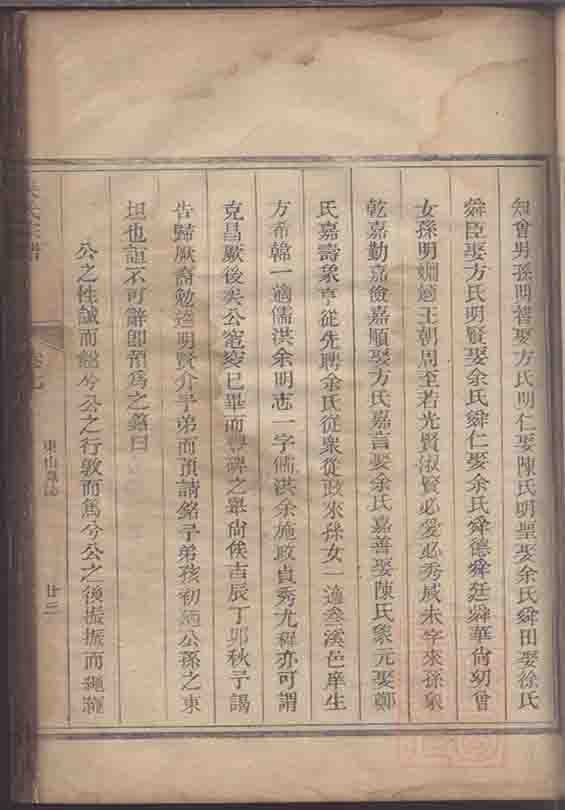 知會男孫明禮娶方氏明仁娶陳氏明聖娶余氏舜田娶徐氏
舜臣娶方氏明賢娶余氏舜仁娶余氏舜德舜廷舜華尚幼曾
女孫明嫻適王朝周至若光賢淑賢必愛必秀咸未字來孫象
乾嘉勤嘉儉嘉順娶方氏嘉言娶余氏嘉善娶陳氏象元娶鄭
氏嘉壽象亨從先聘余氏從眾從政來孫女一適叄溪邑庠生
方希韓一適儒洪余明志一字儒洪余施政貞秀尤稺亦可謂
克昌厥後矣公窀穸已畢而尋碑之舉尚俟吉辰丁卯秋予謁
告歸厥裔勉達明賢介予弟而預請銘予弟孩初公孫之東
坦也誼不可辭即預為之銘曰
公之性誠而兮公之行敦而篤兮公之後振振而繩繩
氏宗譜
東山墓誌
廿三